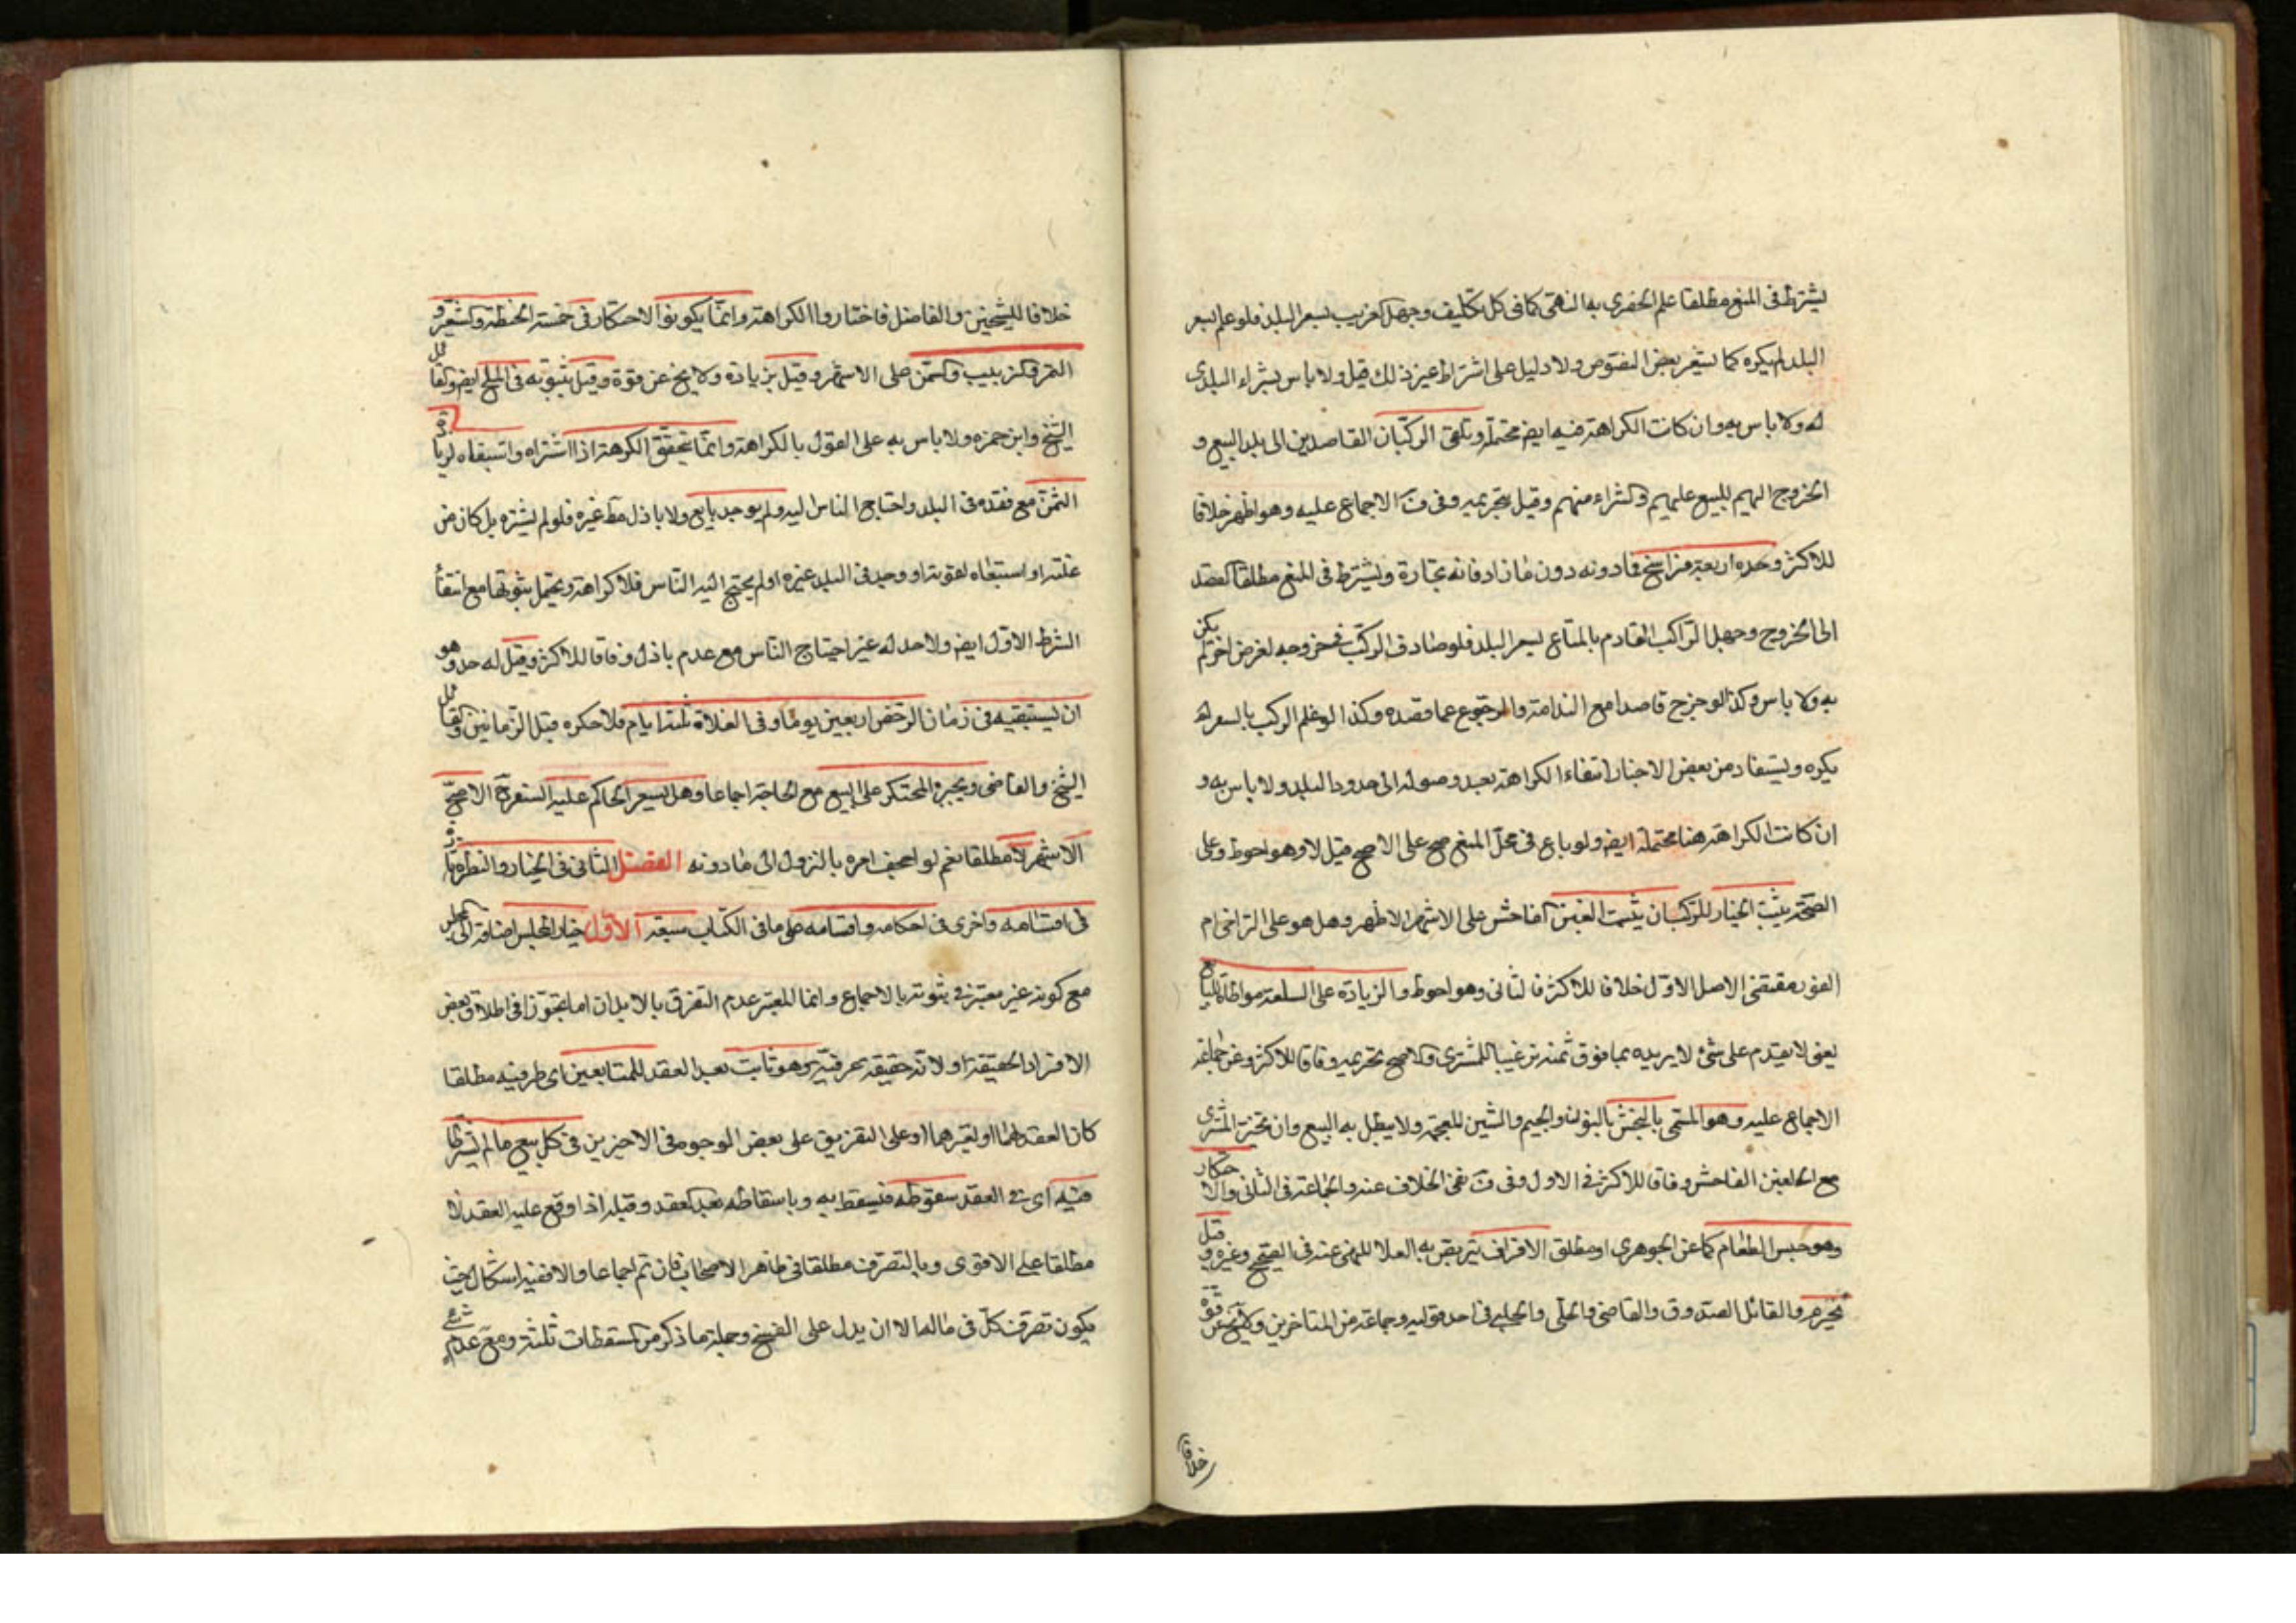 يشترط في المنع مطلقا علم الحضري به النهي كما في كل تكليف وجهل الغريب بسعر البلد فلو علم بسعر
البلد لم يكره كما يشعر بعض النصوص ولا دليل على اشتراط غير ذلك قيل ولا باس بشراء البلدي
له ولا باس به وان كانت الكراهة فيه ايض محتملة وتلقي الركبان القاصدين الى بلد البيع و
الخروج اليهم للبيع عليهم والشراء منهم وقيل بتحريمه وفي ف الاجماع عليه وهو اظهر خلافا
للاكثر وحده اربعة فراسخ فما دونه دون ما زاد فانه تجارة ويشترط في المنع مطلقا القصد
الى الخروج وجهل الراكب القادم بالمتاع لسعر البلد فلو صادف الركب في خروجه لغرض اخر لم يكن
به ولا باس وكذا لو خرج قاصدا مع الندامة والرجوع عما قصده وكذا لو علم الركب بالسعر لم
يكره ويستفاد من بعض الاخبار انتفاء الكراهة بعد وصوله الى حدود البلد ولا باس به و
ان كانت الكراهة هنا محتملة ايض ولو باع في محل المنع صح على الاصح قيل لا وهو احوط وعلى
الصحة يثبت الخيار للركبان يثبت الغبن الفاحش على الاشهر الاظهر وهل هو على التراخي ام
الفور مقتضى الاصل الاول خلافا للاكثر فالثاني وهو احوط والزيادة على السلعة مواطاة للبايع
يعني لا يقدم على شئ لا يريده بما فوق ثمنه ترغيبا للمشتري والاصح تحريمه وفاقا للاكثر وعن جماعة
الاجماع عليه وهو المسمى بالنجش بالنون والجيم والشين المعجمة ولا يبطل به البيع وان تخير المشتري
مع الغبن الفاحش وفاقا للاكثر في الاول وفي ف نفي الخلاف عنه والجماعة في الثاني والاحتكار
وهو حبس الطعام كما عن الجوهري او مطلق الاقوات يتربص به الغلا للنهي عنه في الصحيح وغيره وقيل
يحرم والقائل الصدوق والقاضي والحلي والحلبي في احد قوليه وجماعة من المتاخرين ولا يخ عن قوة
خلافا
خلافا للشيخين والفاضل فاختاروا الكراهة وانما يكون الاحتكار في خمسة الحنطة والشعير و
التمر والزبيب والسمن على الاشهر وقيل بزيادة ولا يخ عن قوة وقيل بثبوته في الملح ايض والقائل
الشيخ وابن حمزه ولا باس به على القول بالكراهة وانما يتحقق الكرهة اذا اشتراه واستبقاه لزيادة
الثمن مع فقده في البلد واحتاج الناس اليه ولم يوجد بايع ولا باذل مط غيره فلو لم يشتره بل كان من
غلته او استبقاه لقوته او وجد في البلد غيره او لم يحتج اليه الناس فلا كراهة ويحتمل ثبوتها مع انتفا
الشرط الاول ايض ولا حد له غير احتياج الناس مع عدم باذل وفاقا للاكثر وقيل له حد وهو
ان يستبقيه في زمان الرخص اربعين يوما وفي الغلاة ثلثة ايام فلا حكره قبل الزمانين والقائل
الشيخ والقاضي ويجبر المحتكر على البيع مع الحاجة اجماعا وهل يسعر الحاكم عليه السعر ح الاصح
الاشهر لا مطلقا نعم لو اجحف امره بالنزول الى ما دونه الفصل الثاني في الخيار والنظر تارة
في اقسامه واخرى في احكامه واقسامه على ما في الكتاب سبعة الاول خيار المجلس اضافة الى المجلس
مع كونه غير معتبر في ثبوته بالاجماع وانما المعتبر عدم التفرق بالابدان اما بتجوز في اطلاق بعض
الافراد الحقيقة او لانه حقيقة عرفية وهو ثابت بعد العقد للمتبايعين اى طرفيه مطلقا
كان العقد لهما او لغيرهما او على التفريق على بعض الوجوه في الاخيرين في كل بيع ما لم يشترط
فيه اى في العقد سقوطه فيسقط به وباسقاطه بعد العقد وقبله اذا وقع عليه العقد لا
مطلقا على الاقوى وبالتصرف مطلقا في ظاهر الاصحاب فان تم اجماعا والا ففيه اشكال حيث
يكون تصرف كل في ماله الا ان يدل على الفسخ وجملة ما ذكر من المسقطات ثلثة ومع عدم شئ